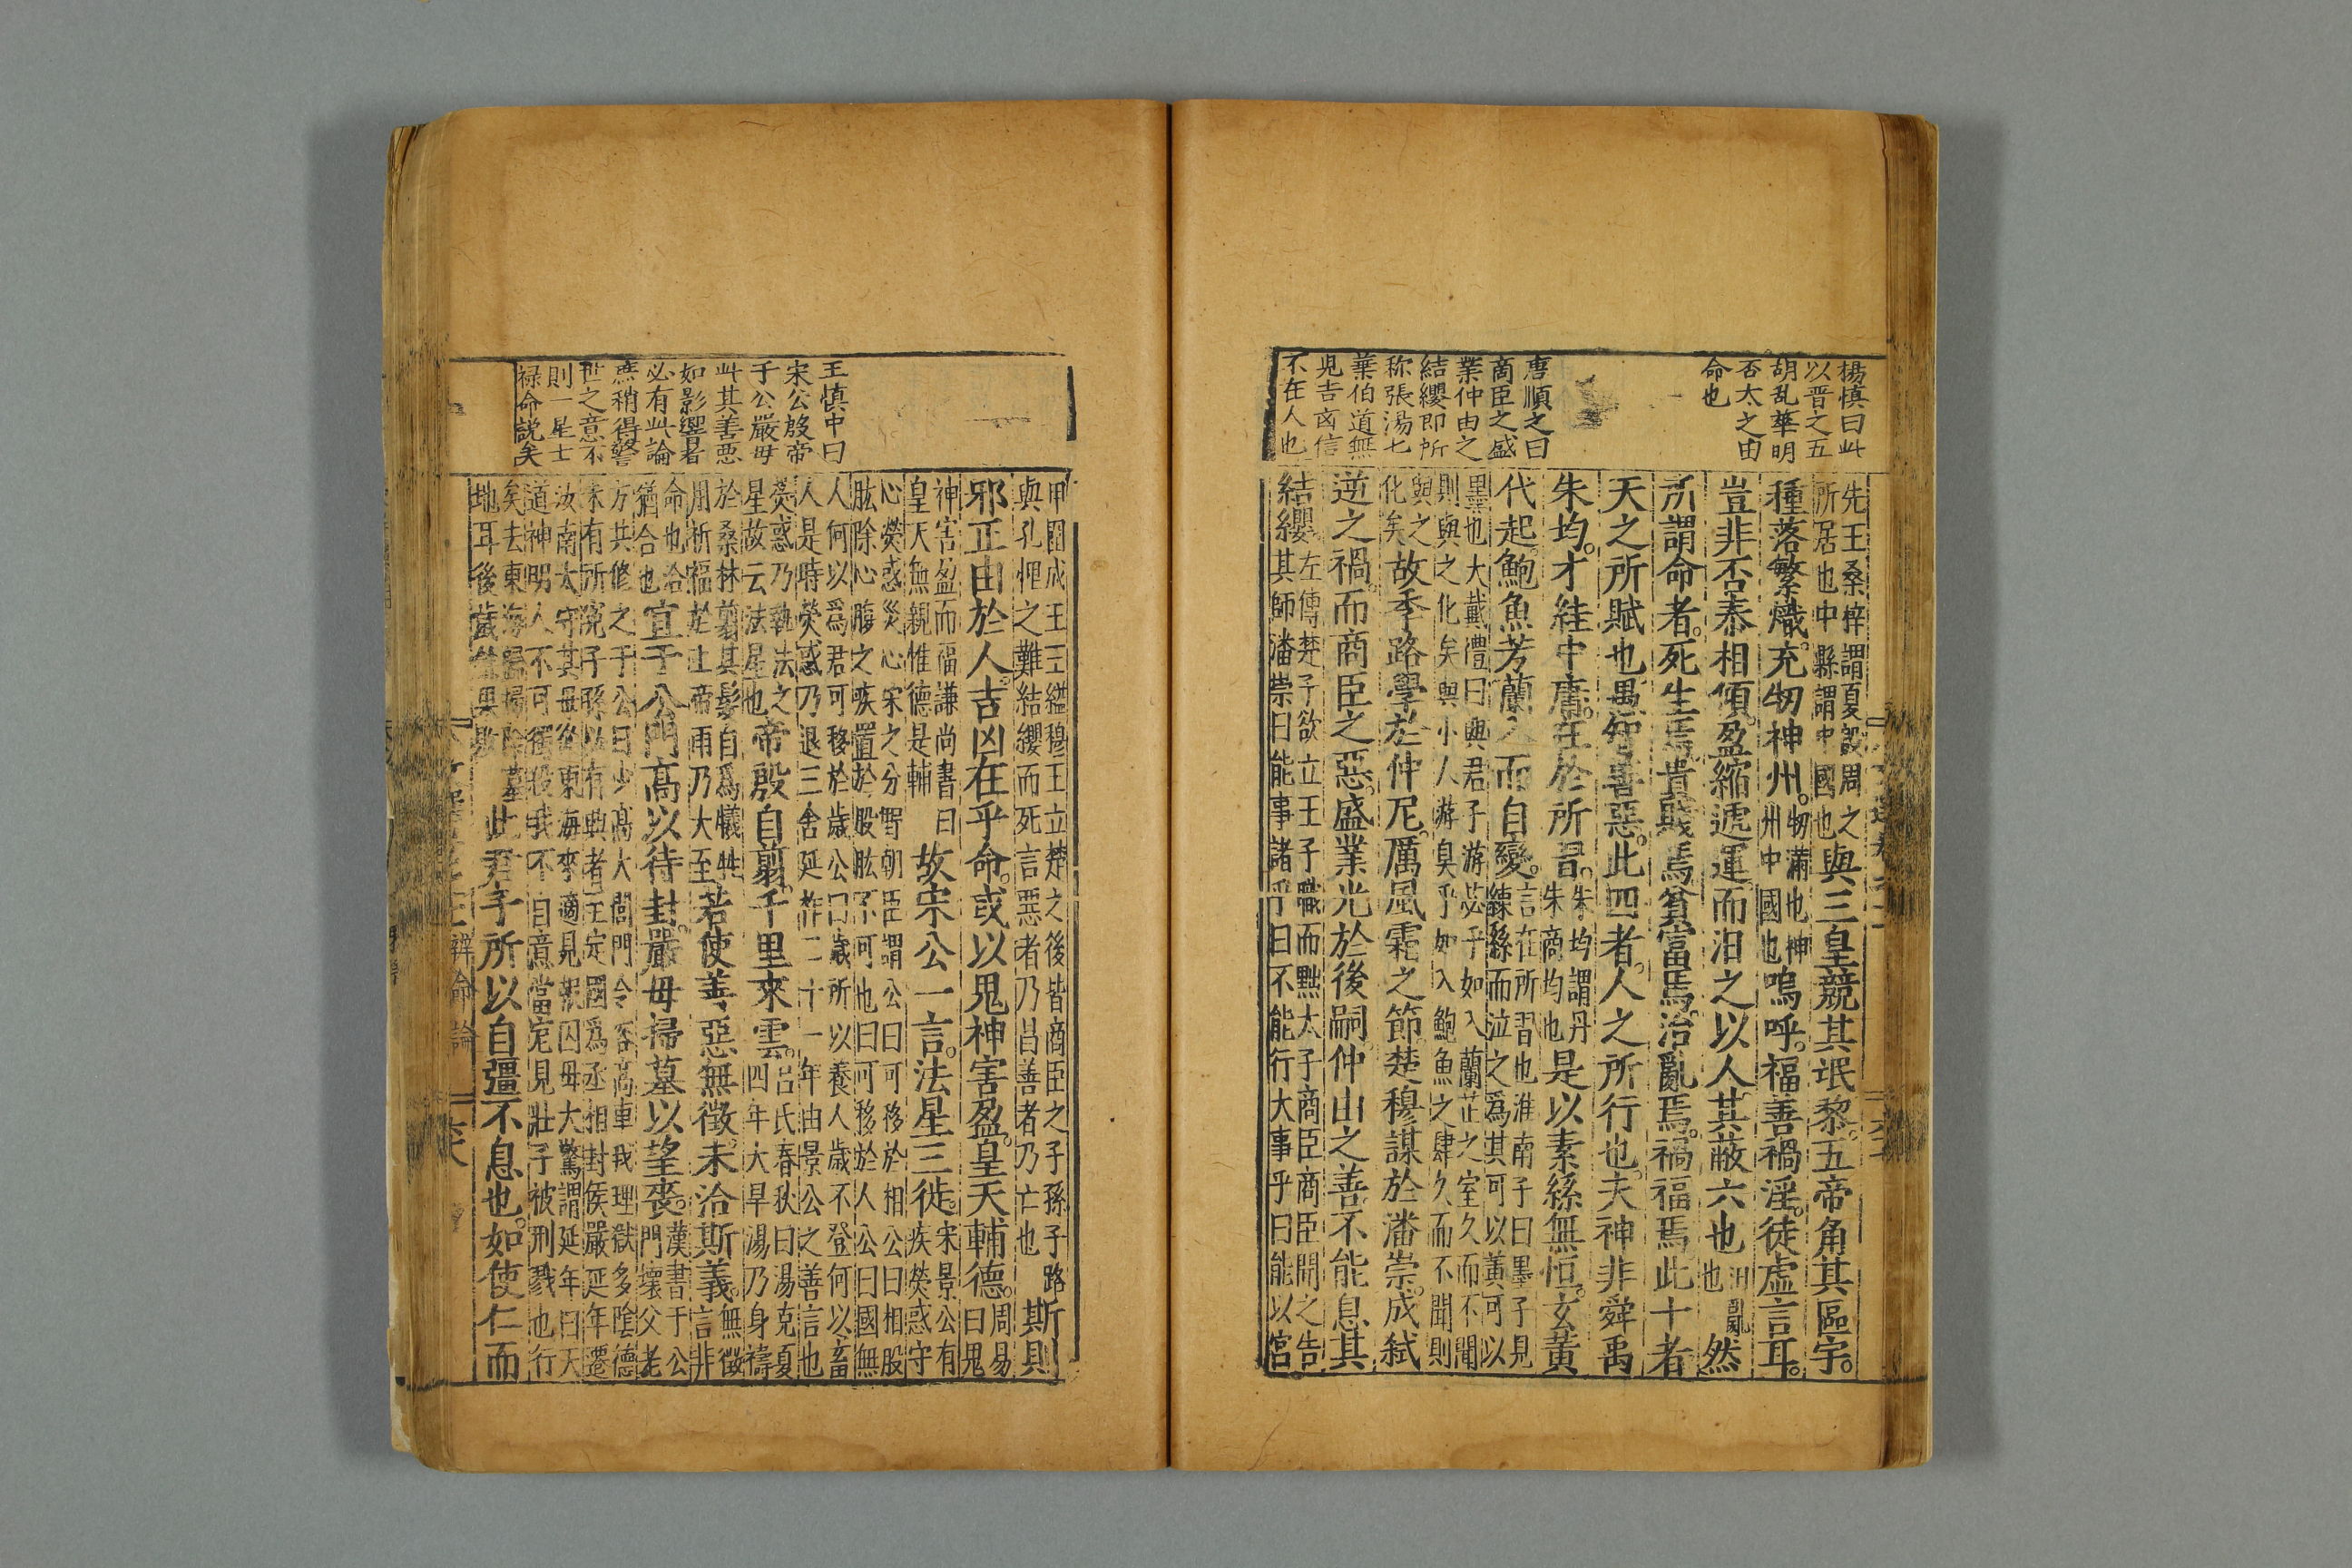 楊慎曰此
以晋之五
胡乱華明
否太之由
命也
唐順之曰
商臣之盛
業仲由之
結纓即所
称張湯七
葉伯道無
児吉㐫信
不在人也
先王桑梓謂夏殷周之所居也中縣謂中國也與三皇競其氓黎。五帝角其區宇。
種落繁熾。充牣神州。牣滿也神州中國也嗚呼。福善禍淫。徒虛言耳。
豈非否泰相傾。盈縮遞運而汩之以人。其蔽六也汩亂也然
所謂命者。死生焉。貴賤焉。貧富焉。治亂焉。禍福焉。此十者
天之所賦也。愚智善惡。此四者。人之所行也。夫神非舜禹
朱均。才絓中庸。在於所習。朱均謂丹朱商均也是以素絲無恒。玄黃
代起。鮑魚芳蘭入而自變。言在所習也淮南子曰墨子見練絲而泣之爲其可以黃可以
黑也大戴禮曰與君子游苾乎如入蘭芷之室久而不聞則與之化矣與小人游臭乎如入鮑魚之肆久而不聞則
與之化矣故季路學於仲尼。厲風霜之節。楚穆謀於潘崇。成弑
逆之禍。而商臣之惡。盛業光於後嗣。仲由之善。不能息其
結纓。左傳楚子欲立王子職而黜太子商臣商臣聞之告其師潘崇曰能事諸乎曰不能行大事乎曰能以宮
王慎中曰
宋公殷帝
于公嚴母
此其善悪
如影響者
必有此論
庶稍得警
世之意不
則一星士
禄命説矣
甲圍成王王縊穆王立楚之後皆商臣之子孫子路與孔悝之難結纓而死言惡者乃昌善者乃亡也斯則
邪正由於人。吉凶在乎命。或以鬼神害盈。皇天輔德。周易曰鬼
神害盈而福謙尚書曰皇天無親惟德是輔故宋公一言。法星三徙。宋景公有疾熒惑守
心熒惑災心宋之分野朝臣謂公曰可移於相公曰相股肱除心腹之疾置於股肱不可也曰可移於人公曰國無
人何以爲君可移於歲公曰歲所以養人歲不登何以畜人是時熒惑乃退三舍延祚二十一年由景公之善言也
熒惑乃執法之星故云法星也帝殷自翦。千里來雲。呂氏春秋曰湯克夏四年大旱湯乃身禱
於桑林翦其髮自爲犧牲用祈福於上帝雨乃大至若使善惡無徵。未洽斯義。無徵言非
命也洽猶合也宜于公門高以待封。嚴母掃墓以望喪。漢書于公門壞父老
方共修之于公曰少高大閭門令容高車我理獄多陰德未有所寃子孫必有興者至定國爲丞相封侯嚴延年遷
汝南太守其母從東海來適見報囚母大驚謂延年曰天道神明人不可獨殺我不自意當老見壯子被刑戮也行
矣去東海歸掃除墓地耳後歲餘果敗此君子所以自彊不息也。如使仁而